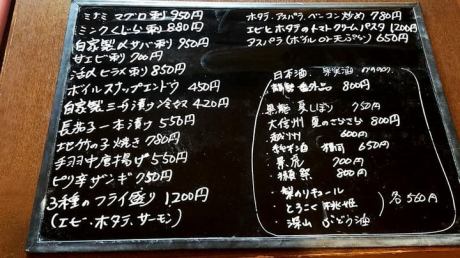 ミナミマグロ刺 950円
ミンククジラ刺 880円
自家製〆サバ刺 850円
甘エビ刺 700円
活〆ヒラメ刺 850円
ボイルスナップエンドウ 450円
自家製三升漬け冷奴 420円
長茄子一本漬け 550円
780円
手羽中唐揚げ 550円
ピリ辛ザンギ 750円
3種のフライ盛り 1200円
(エビ・ホタテ、サーモン)
ホタテ、アスパラ、ベーコン炒め 780円
エビとホタテのトマトクリームパスタ 1200円
アスパラ(ボイル or 天ぷら) 650円
日本酒
番外品 800円
夏しぼり 750円
大信州 夏のさらさら 800円
600円
650円
700円
獺祭 800円
・梨のリキュール
・とろこく桃姫
・深山ぶどう酒
各560円